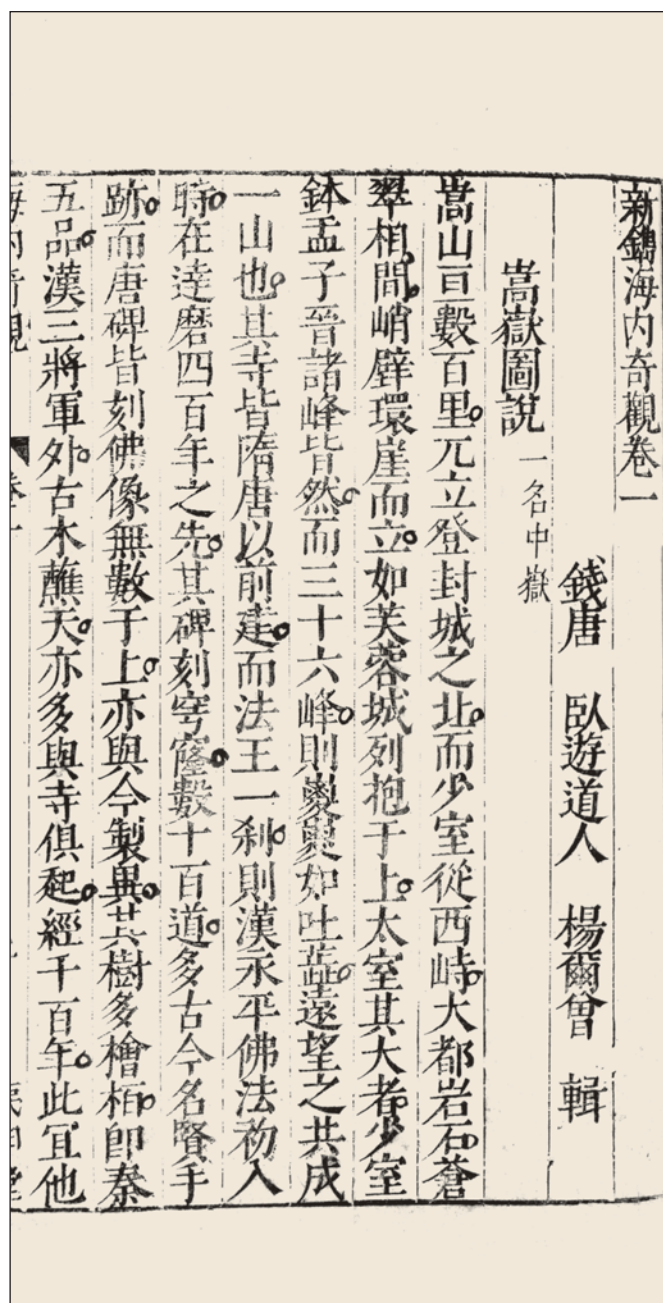 新鐫海內奇觀卷一
錢唐 臥遊道人 楊爾曾 輯
嵩嶽圖說 一名中嶽
嵩山亘數百里。兀立登封城之北。而少室從西峙。大都岩石。蒼
翠相。間。峭壁環崖而立。如芙蓉城列抱于上。太室其大者。少室
鉢盂子晉諸峰皆然。而三十六峰。則夔夔如吐蕋。遠望之共成
一山也。其寺皆隋唐以前建。而法王一刹。則漢永平佛法初入
時。在達磨四百年之先。其碑刻穹窿。數十百道。多古今名賢手
跡。而唐碑皆刻佛像無數于上。亦與今製異。其樹多檜栢。即秦
五品。漢三將軍外。古木蘸天。亦多與寺俱起。經千百年。此宜他
海內奇觀 卷一